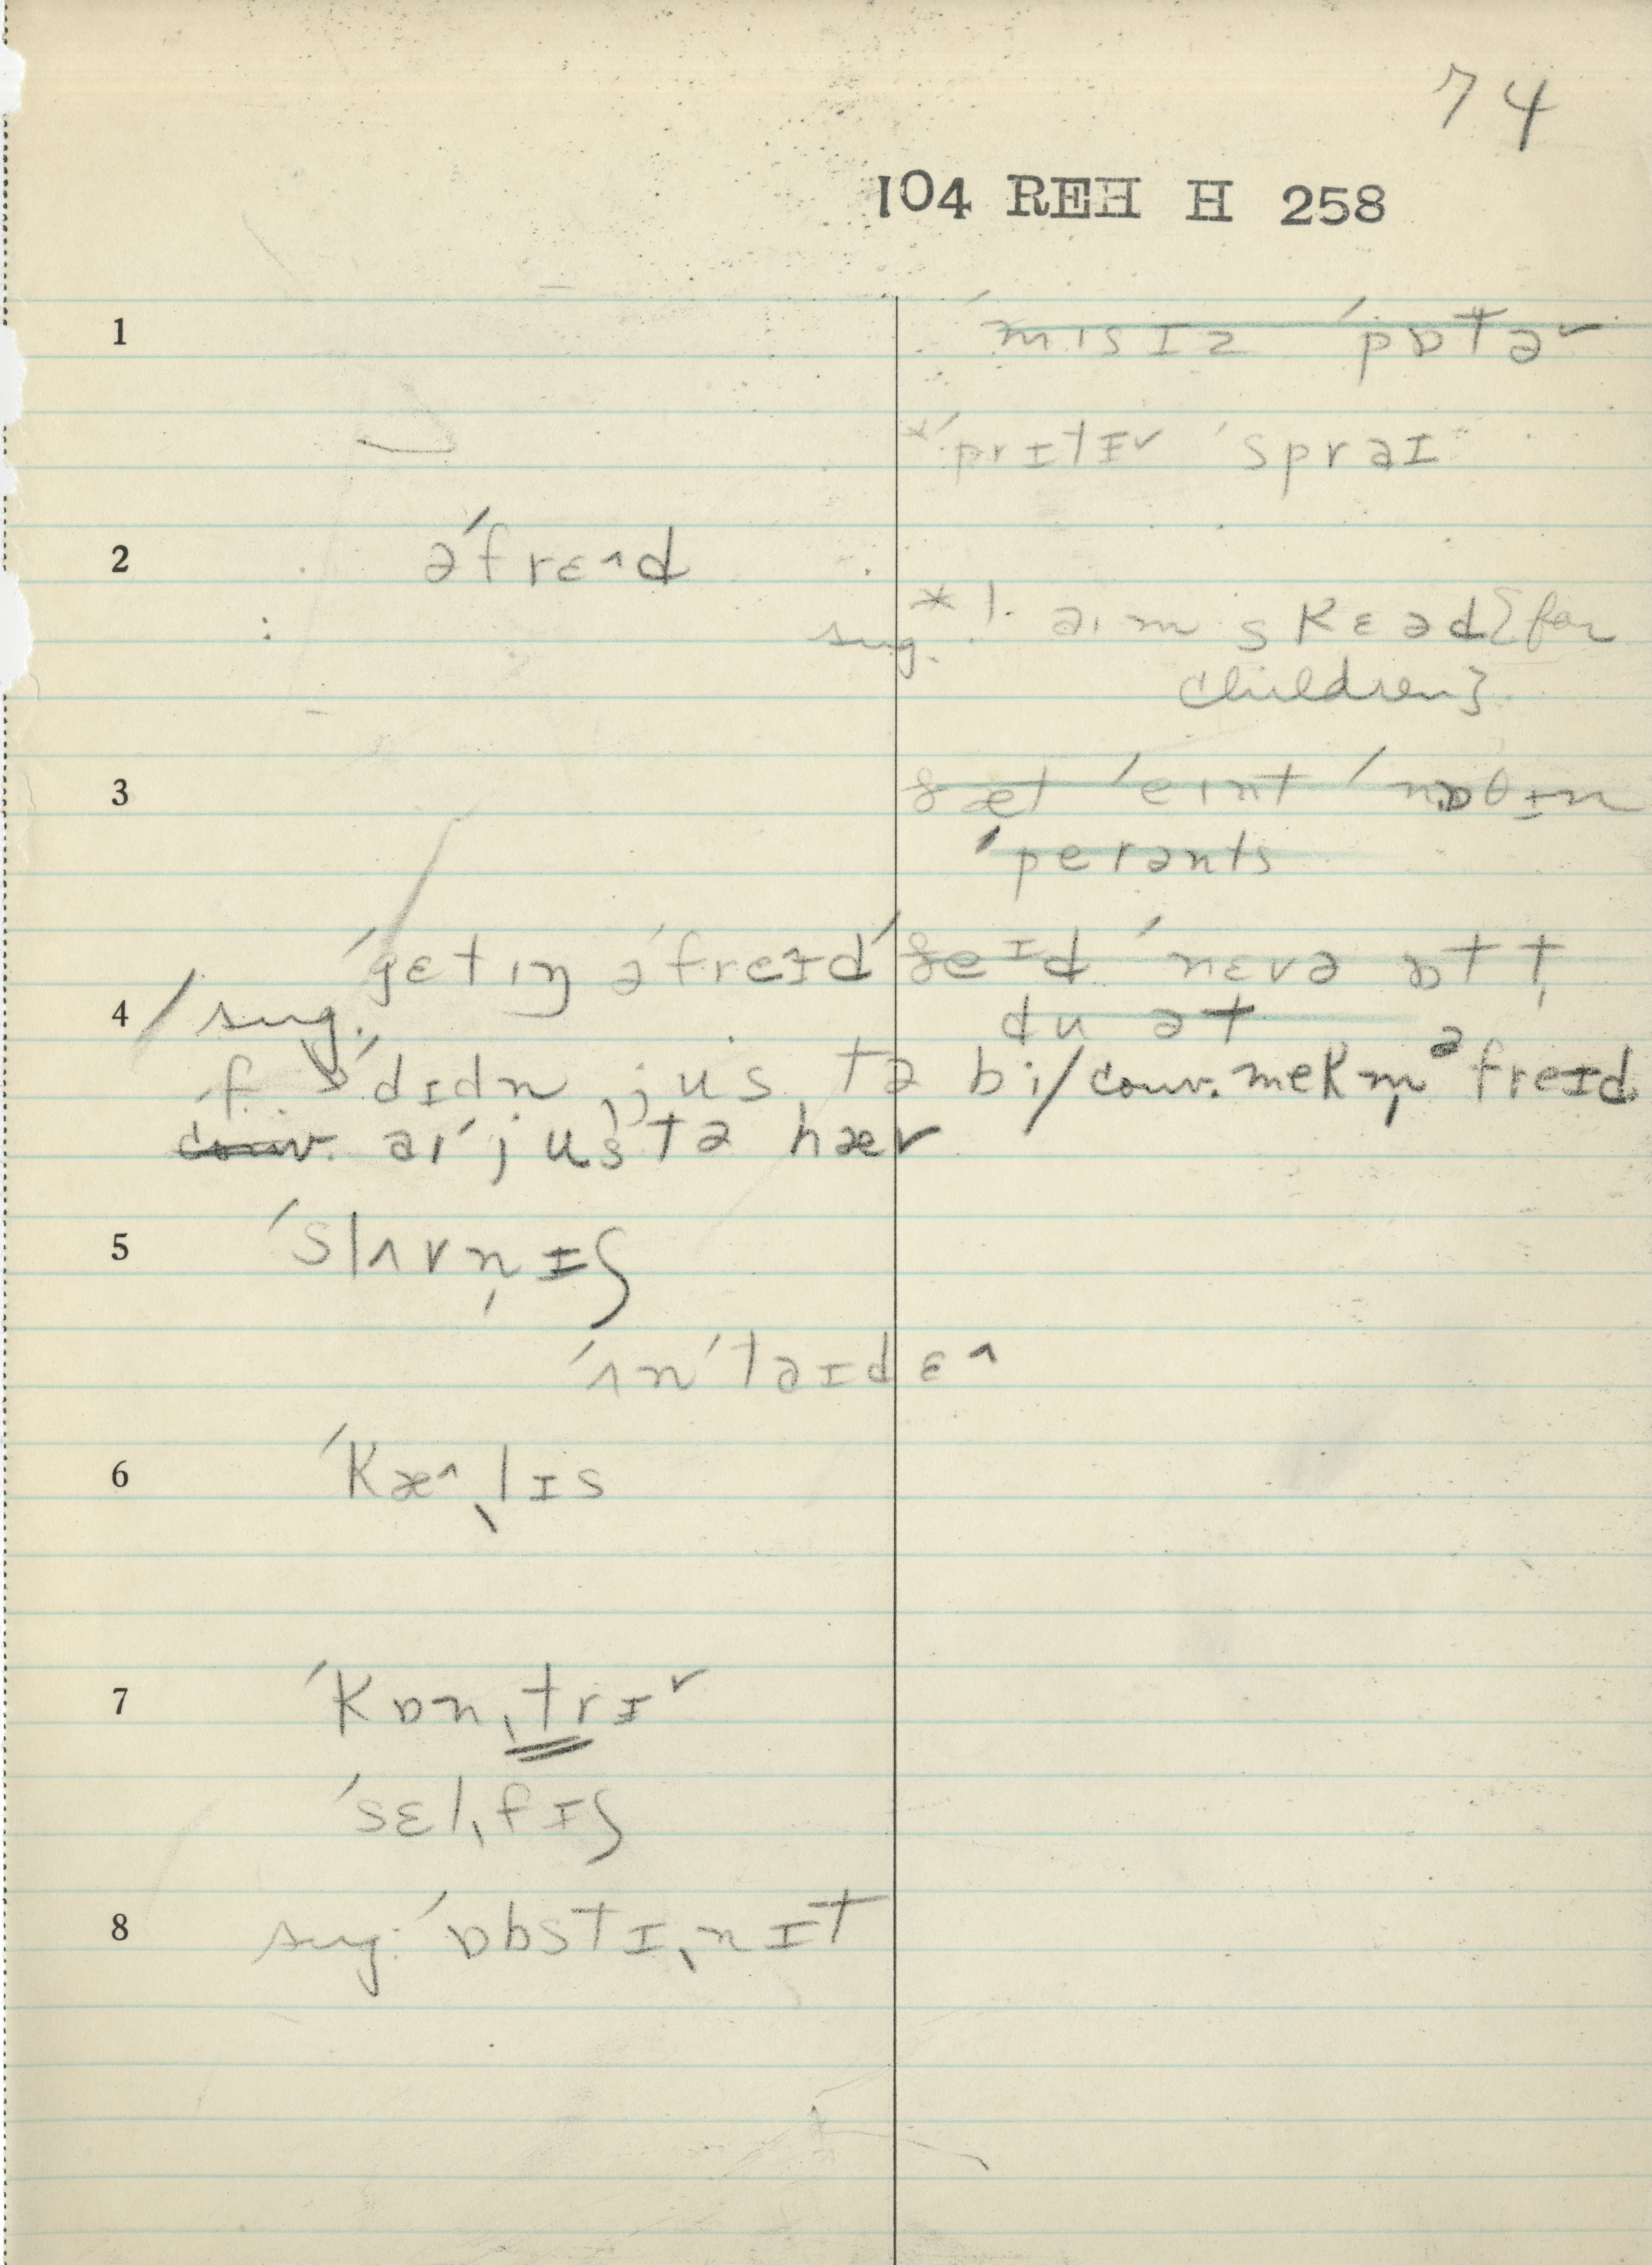 74
104 REH H 258
1 ˈmɪsɪz ˈpɒtə˅
*ˈprɪtɪ˅ ˈsprəɪ
2 əˈfrɛ˄d
sug. *1. əɪm skɛəd {for
children}
3 ðæt ˈeɪnt ˈnɒθɪn
ˈpɛrənts
ˈgɛtɪŋ əˈfreɪd ˈðeɪd ˈnɛvə ɒt t
4 / sug. du ət
f. ʃ ˈdɪdn jus tə bi / conv. mekm̩ əfreɪd
conv. əɪ ˈjus tə hæv
5 ˈslʌvn̩ɪʃ
ˈʌnˈtəɪdɛ˄
6 ˈkæ˄ˌlɪs
7 ˈkɒnˌtrɪ˅
ˈsɛlˌfɪʃ
8 sug. ˈɒbstɪˌnɪt